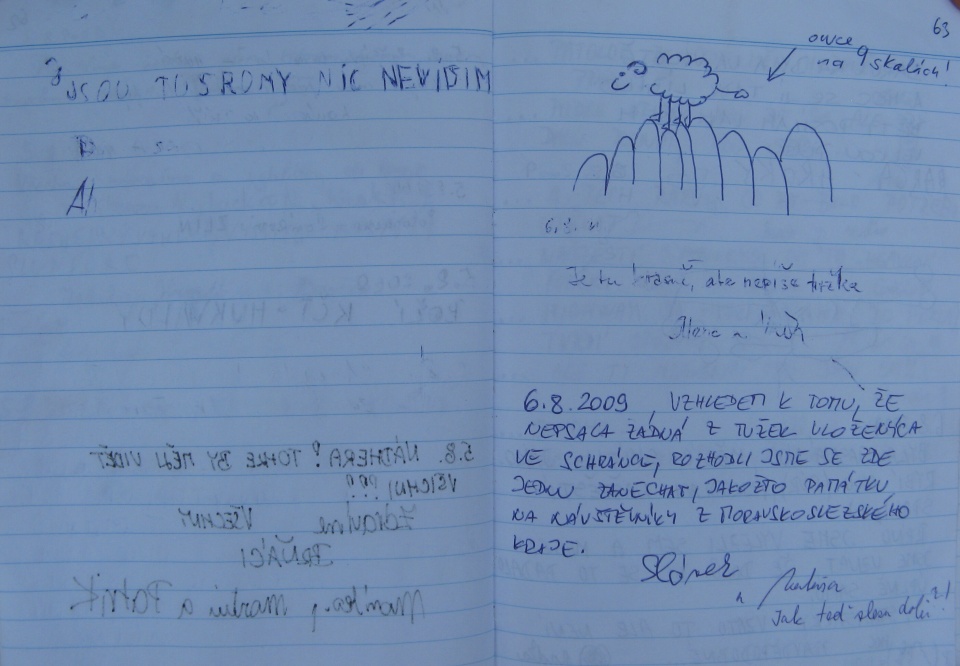 JSOU TU STROMY NIC NEVIDIM
63
ovce
na 9 skalách!
Je tu krásně, ale nepíše tužka
6.8.2009, VZHLEDEM K TOMU, ŽE
NEPSALA ŽÁDNÁ Z TUŽEK ULOŽENÝCH
VE SCHRÁNCE, ROZHODLI JSME SE ZDE
JEDNU ZANECHAT, JAKOŽTO PAMÁTKU
NA NÁVŠTĚVNÍKY Z MORAVSKOSLEZSKÉHO
KRAJE.
Jak teď slezu dolů?!
5.8. NÁTHERA! TOHLE BY MĚLI VIDĚT
VŠICHNI !!!
Zdravíme VŠECHNY
BRŇÁCI
Martin a Patrik